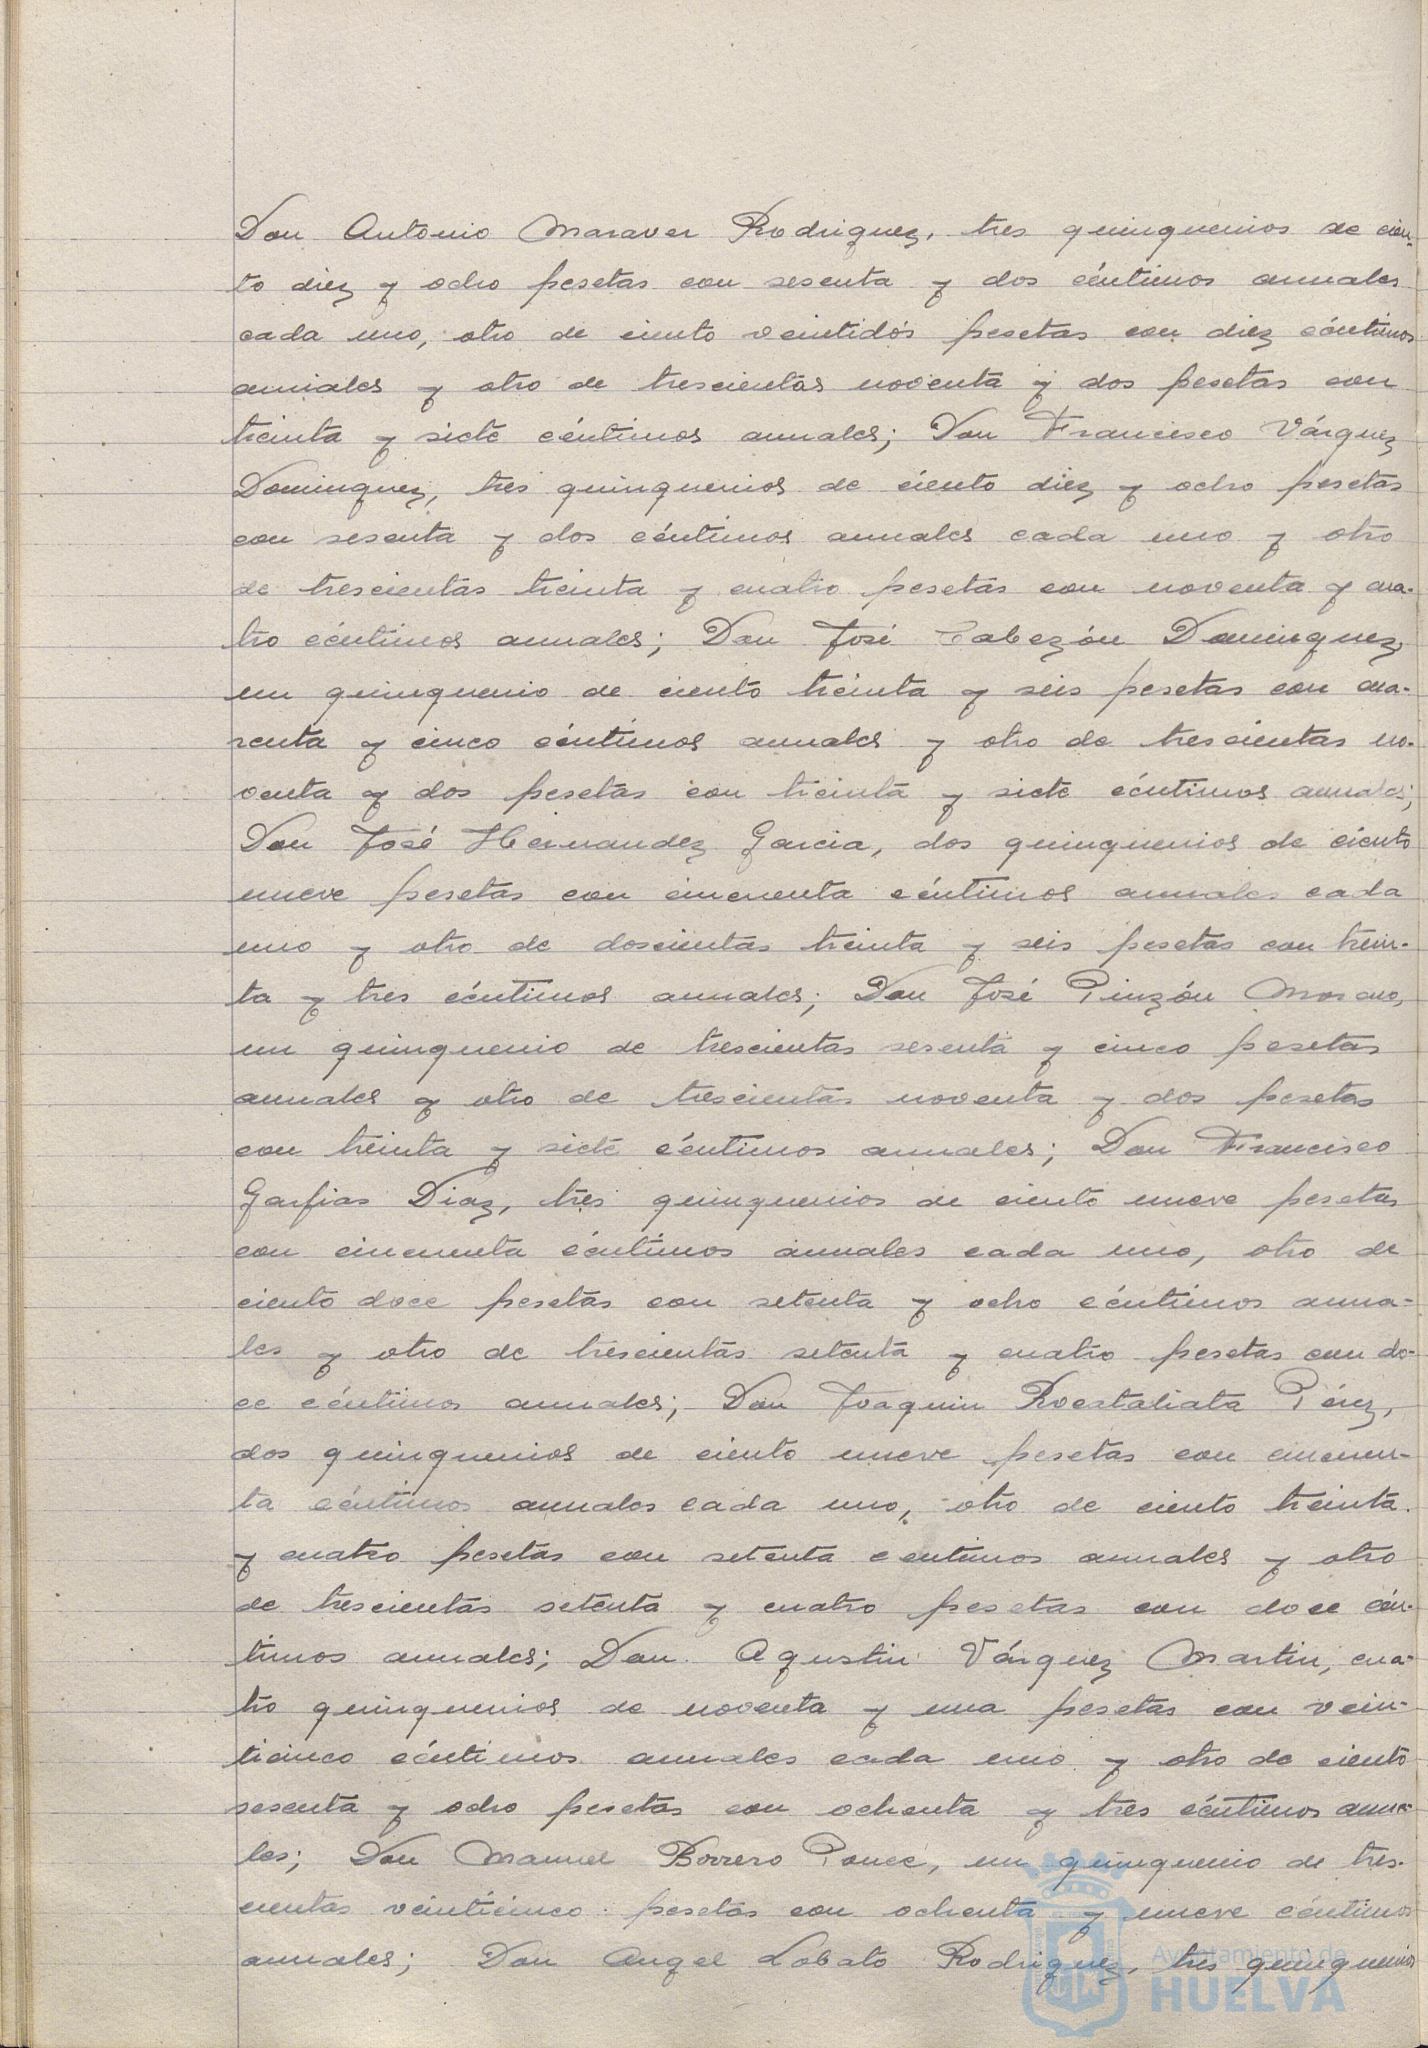 Don Antonio Maraver Rodriguez, tres quinquenios de cien-
to diez y ocho pesetas con sesenta y dos céntimos anuales
cada uno, otro de ciento veintidós pesetas con diez céntimos
anuales y otro de trescientas noventa y dos pesetas con
treinta y siete céntimos anuales; Don Francisco Vázquez
Dominguez, tres quinquenios de ciento diez y ocho pesetas
con sesenta y dos céntimos anuales cada uno y otro
de trescientas treinta y cuatro pesetas con noventa y cua-
tro céntimos anuales; Don José Cabezón Dominguez,
un quinquenio de ciento treinta y seis pesetas con cua-
renta y cinco céntimos anuales y otro de trescientas no-
venta y dos pesetas con treinta y siete céntimos anuales;
Don José Hernandez Garcia, dos quinquenios de ciento
nueve pesetas con cincuenta céntimos anuales cada
uno y otro de doscientas treinta y seis pesetas con trein-
ta y tres céntimos anuales; Don José Pinzón Moreno,
un quinquenio de trescientas sesenta y cinco pesetas
anuales y otro de trescientas noventa y dos pesetas
con treinta y siete céntimos anuales; Don Francisco
Garfias Diaz, tres quinquenios de ciento nueve pesetas
con cincuenta céntimos anuales cada uno, otro de
ciento doce pesetas con setenta y ocho céntimos anua-
les y otro de trescientas setenta y cuatro pesetas con do-
ce céntimos anuales; Don Joaquin Pérez,
dos quinquenios de ciento nueve pesetas con cincuen-
ta céntimos anuales cada uno, otro de ciento treinta
y cuatro pesetas con setenta centimos anuales y otro
de trescientas setenta y cuatro pesetas con doce cén-
timos anuales; Don Agustin Vázquez Martin, cua-
tro quinquenios de noventa y una pesetas con vein-
ticinco céntimos anuales cada uno y otro de ciento
sesenta y ocho pesetas con ochenta y tres céntimos anua-
les; Don Manuel Borrero Ponce, un quinquenio de tres-
cientas veinticinco pesetas con ochenta y nueve céntimos
anuales; Don Angel Lobato Rodriguez, tres quinquenios
Ayuntamiento de
HUELVA